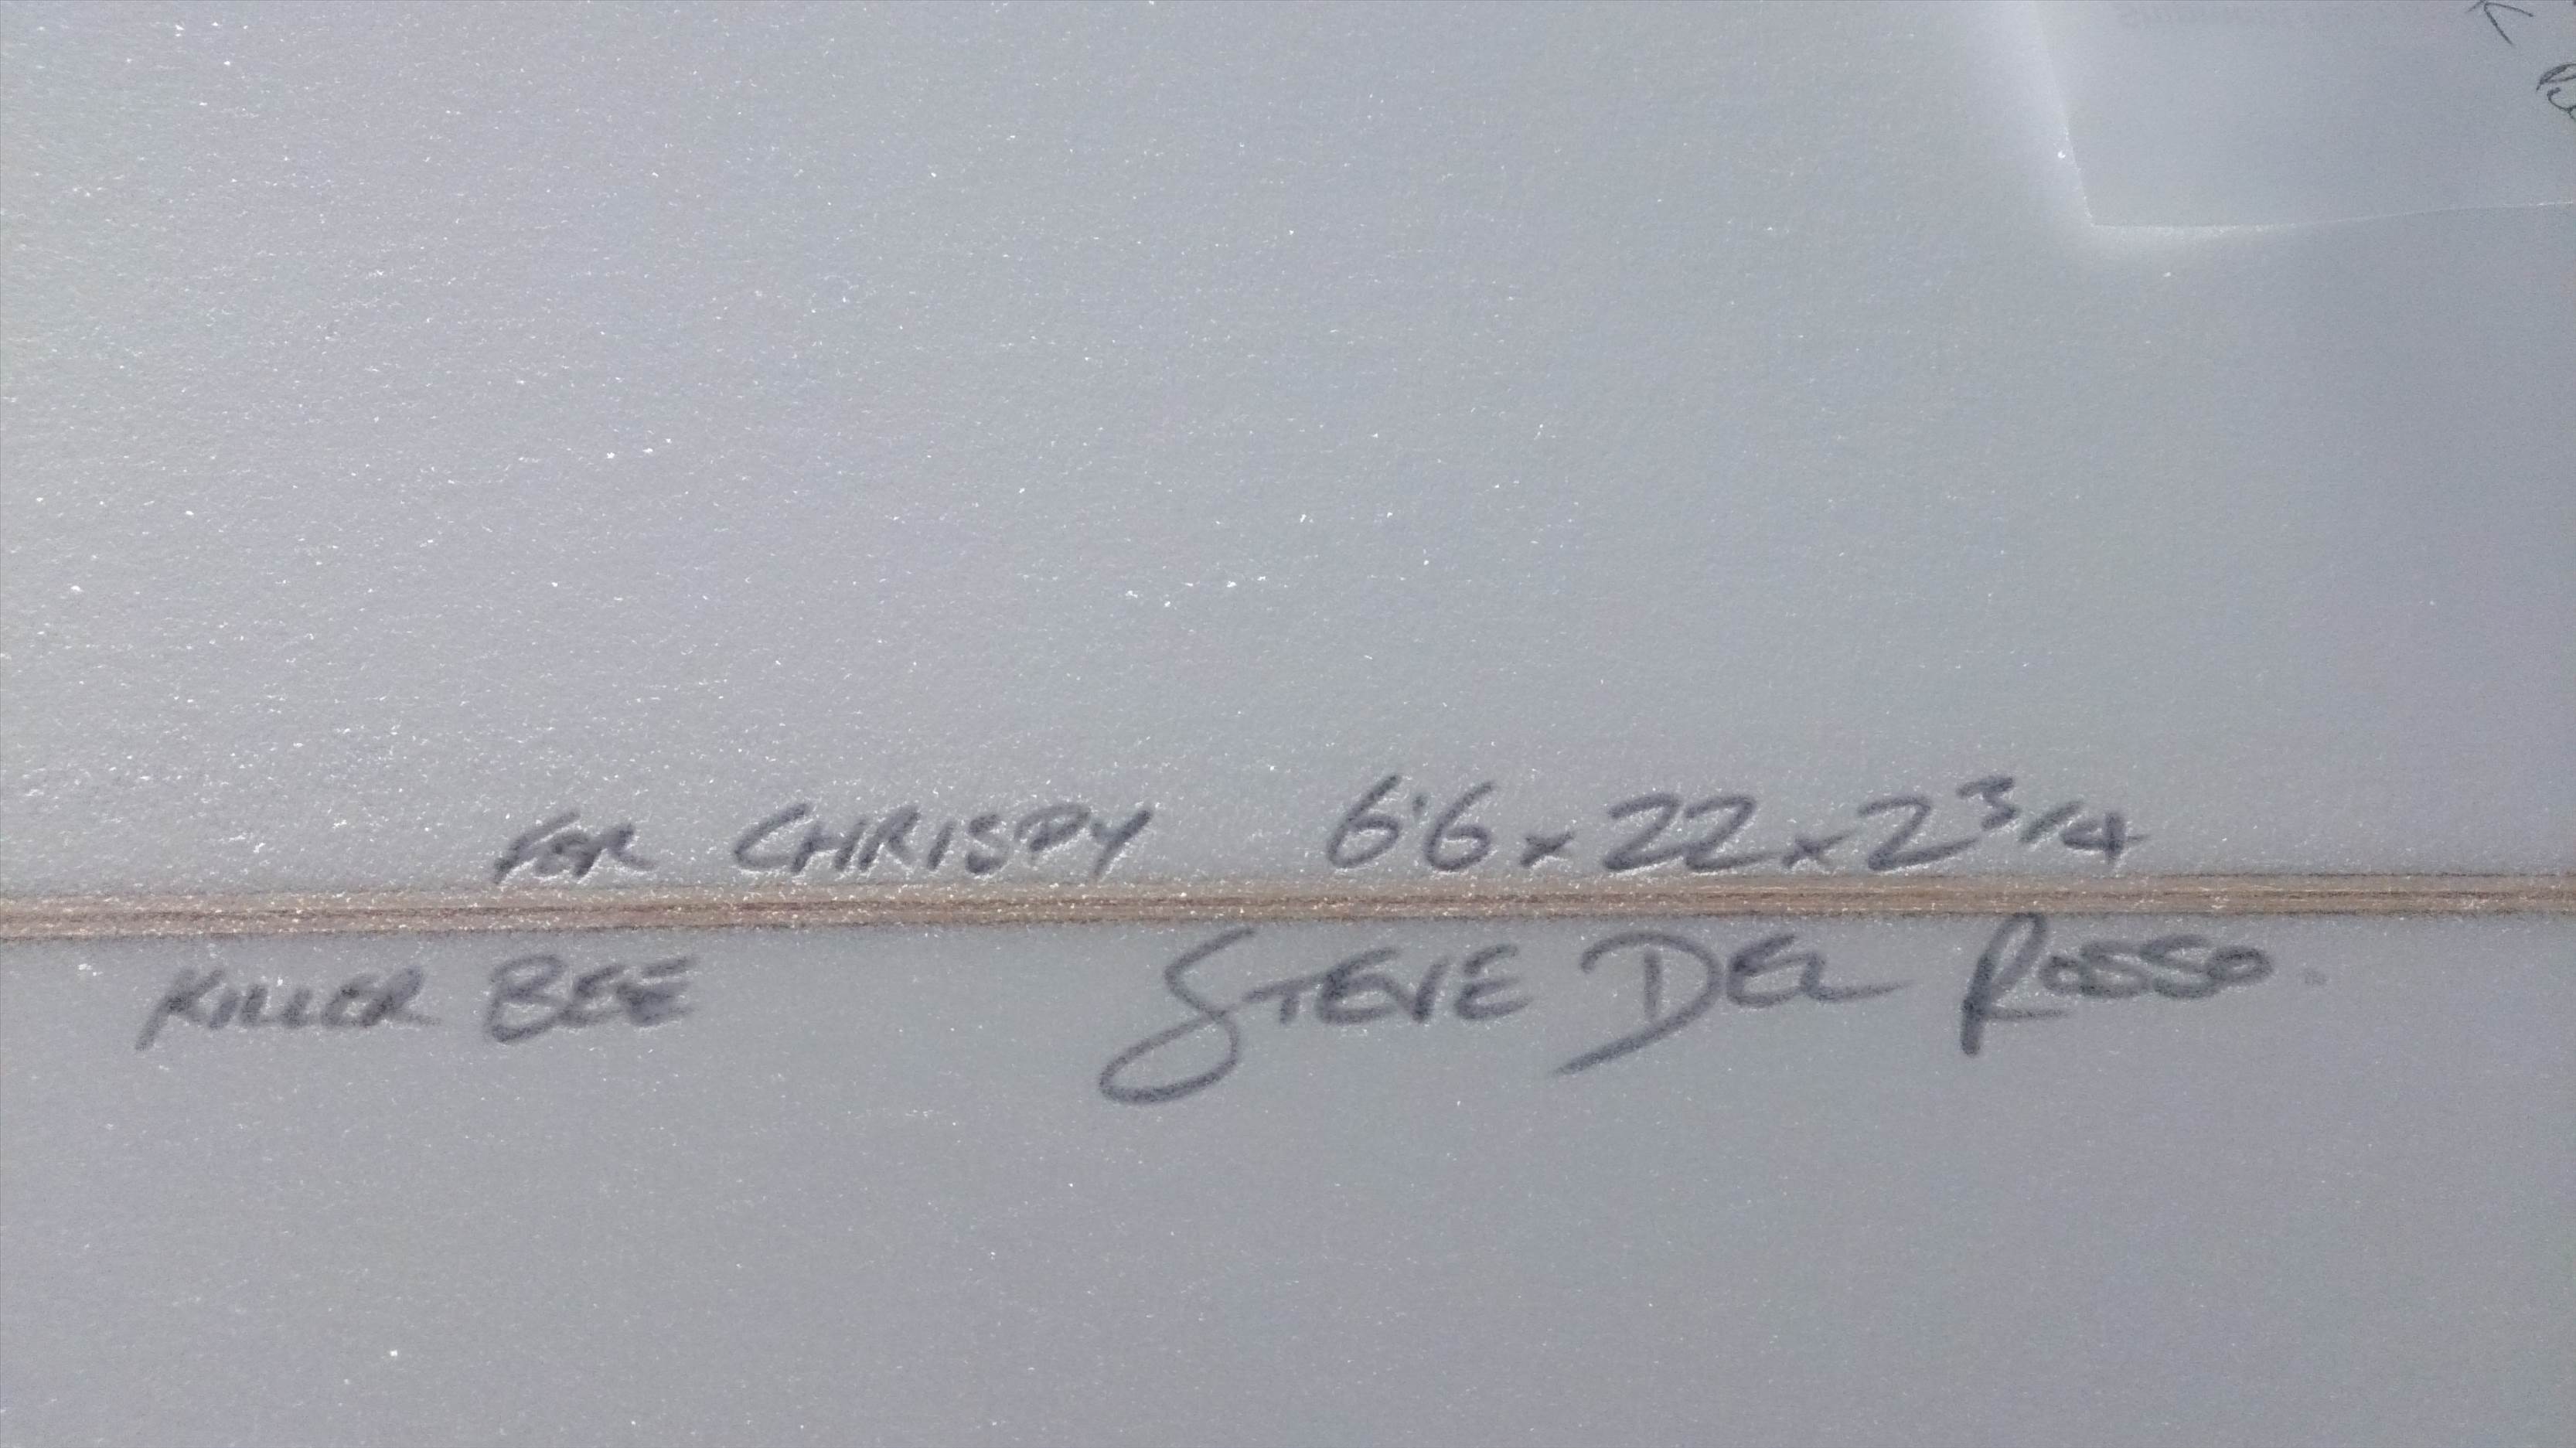 FOR CHRISPY 6'6 x 22 x 2 3/4
KILLER BEE STEVE DEL ROSSO.